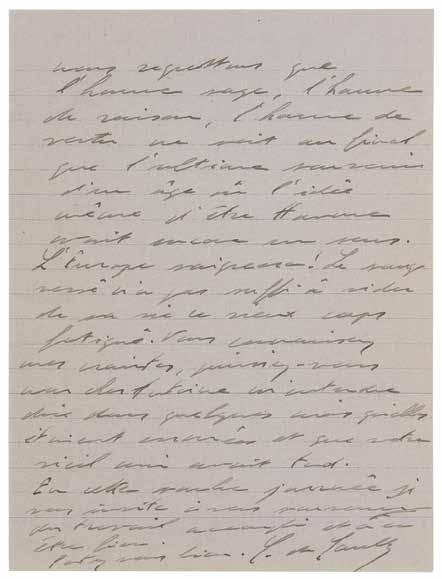 nous regrettons que
l'homme sage, l'homme
de raison, l'homme de
vertu ne soit au final
que l'ultime souvenir
d'un âge où l'idée
même d'être Homme
avait encore un sens.
L'Europe saignera! Le sang
versé n'a pas suffi à vider
de sa vie ce vieux corps
fatigué. Vous connaissez
mes craintes, puissiez-vous
mon cher Antoine m'entendre
dire dans quelques mois qu'elles
étaient erronées et que votre
vieil ami avait tort.
En cette journée je
vous invite à vous souvenir
du travail accompli et à
être fier.
Portez vous bien.